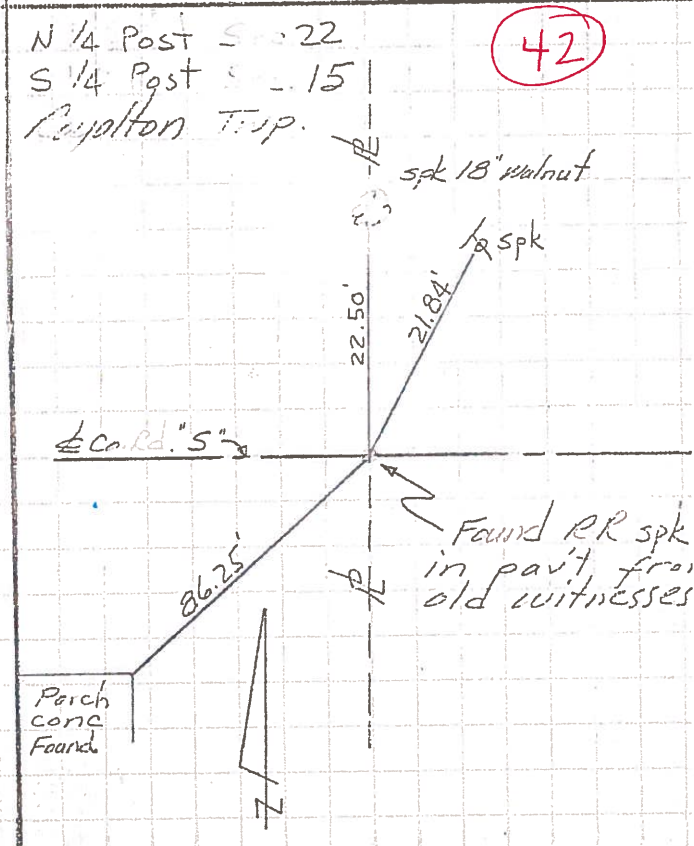 N 1/4 Post Sec 22
42
S 1/4 Post 15
Royalton Twp.
PL
spk 18" walnut
spk
22.50'
21.84'
CL Co. Rd. "S"
Found RR spk
in pav't from
old witnesses
86.25'
PL
Porch
conc
Found
N